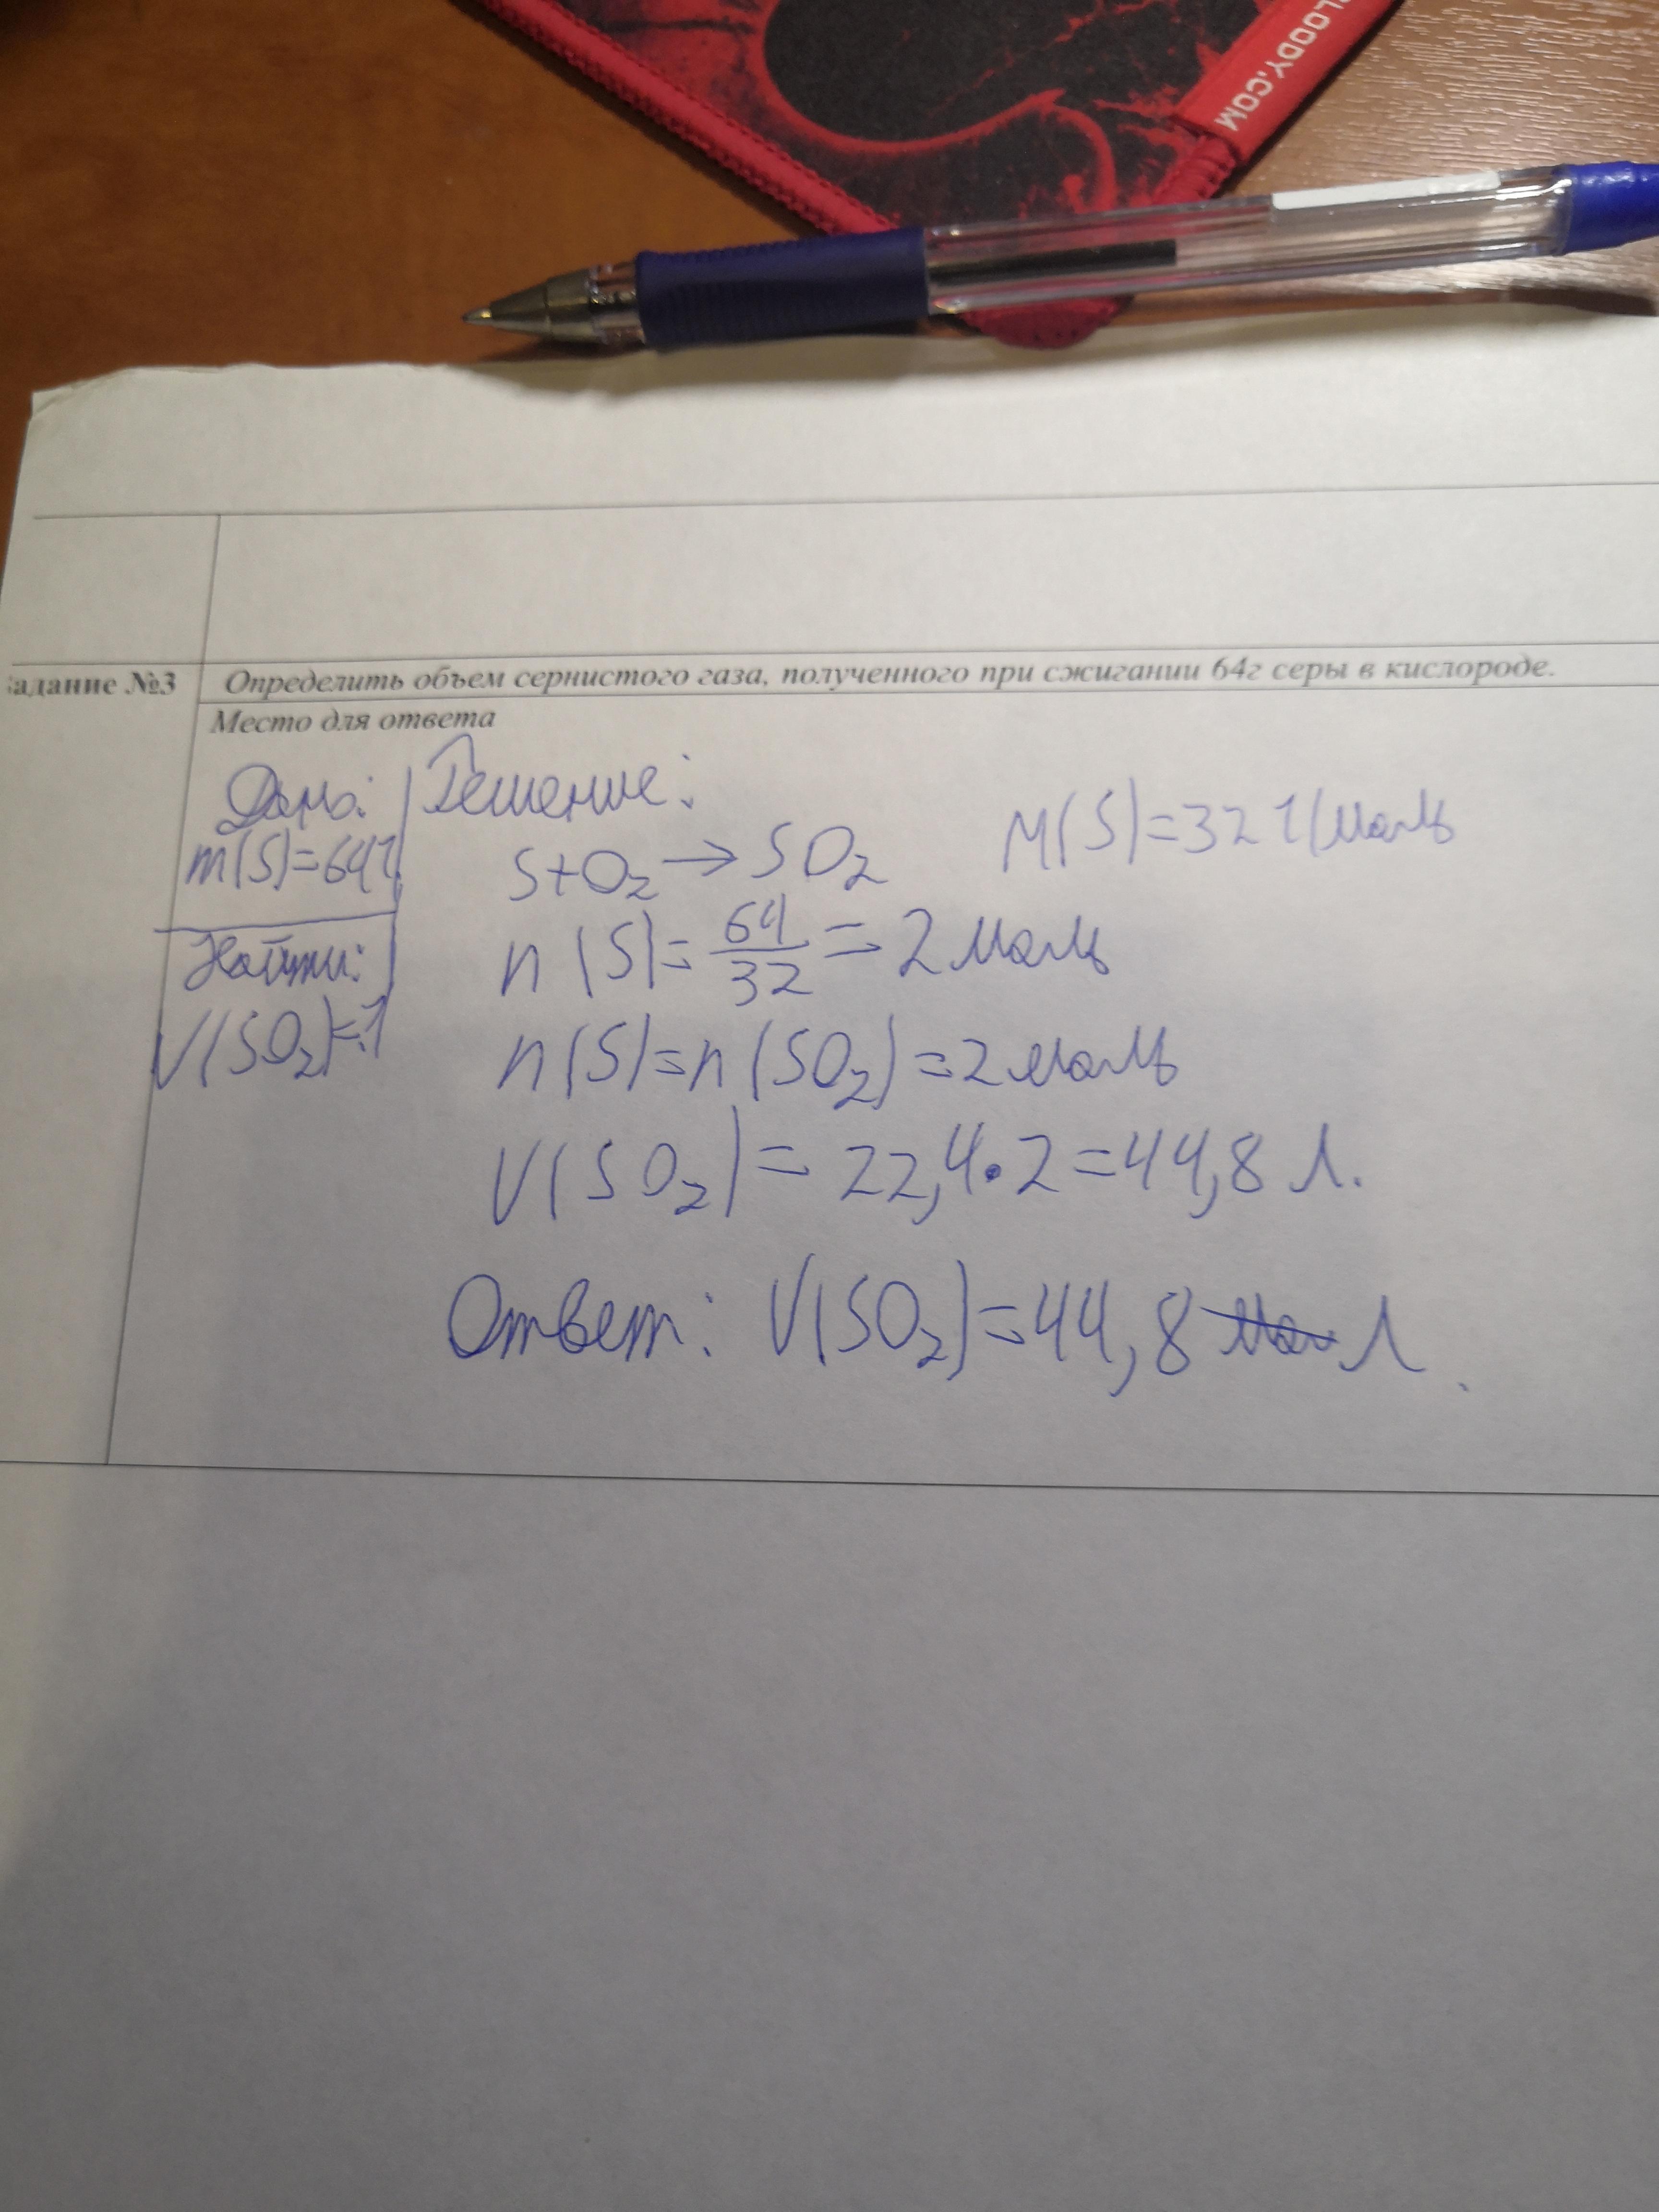 BLOODY.COM
адание №3
Определить объем сернистого газа, полученного при сжигании 64г серы в кислороде.
Место для ответа
Дано:
m(S)=64г
Найти:
V(SO₂)=?
Решение:
S+O₂→SO₂
M(S)=32 г/моль
n(S)=64/32=2 моль
n(S)=n(SO₂)=2 моль
V(SO₂)=22,4·2=44,8 л.
Ответ: V(SO₂)=44,8 л.